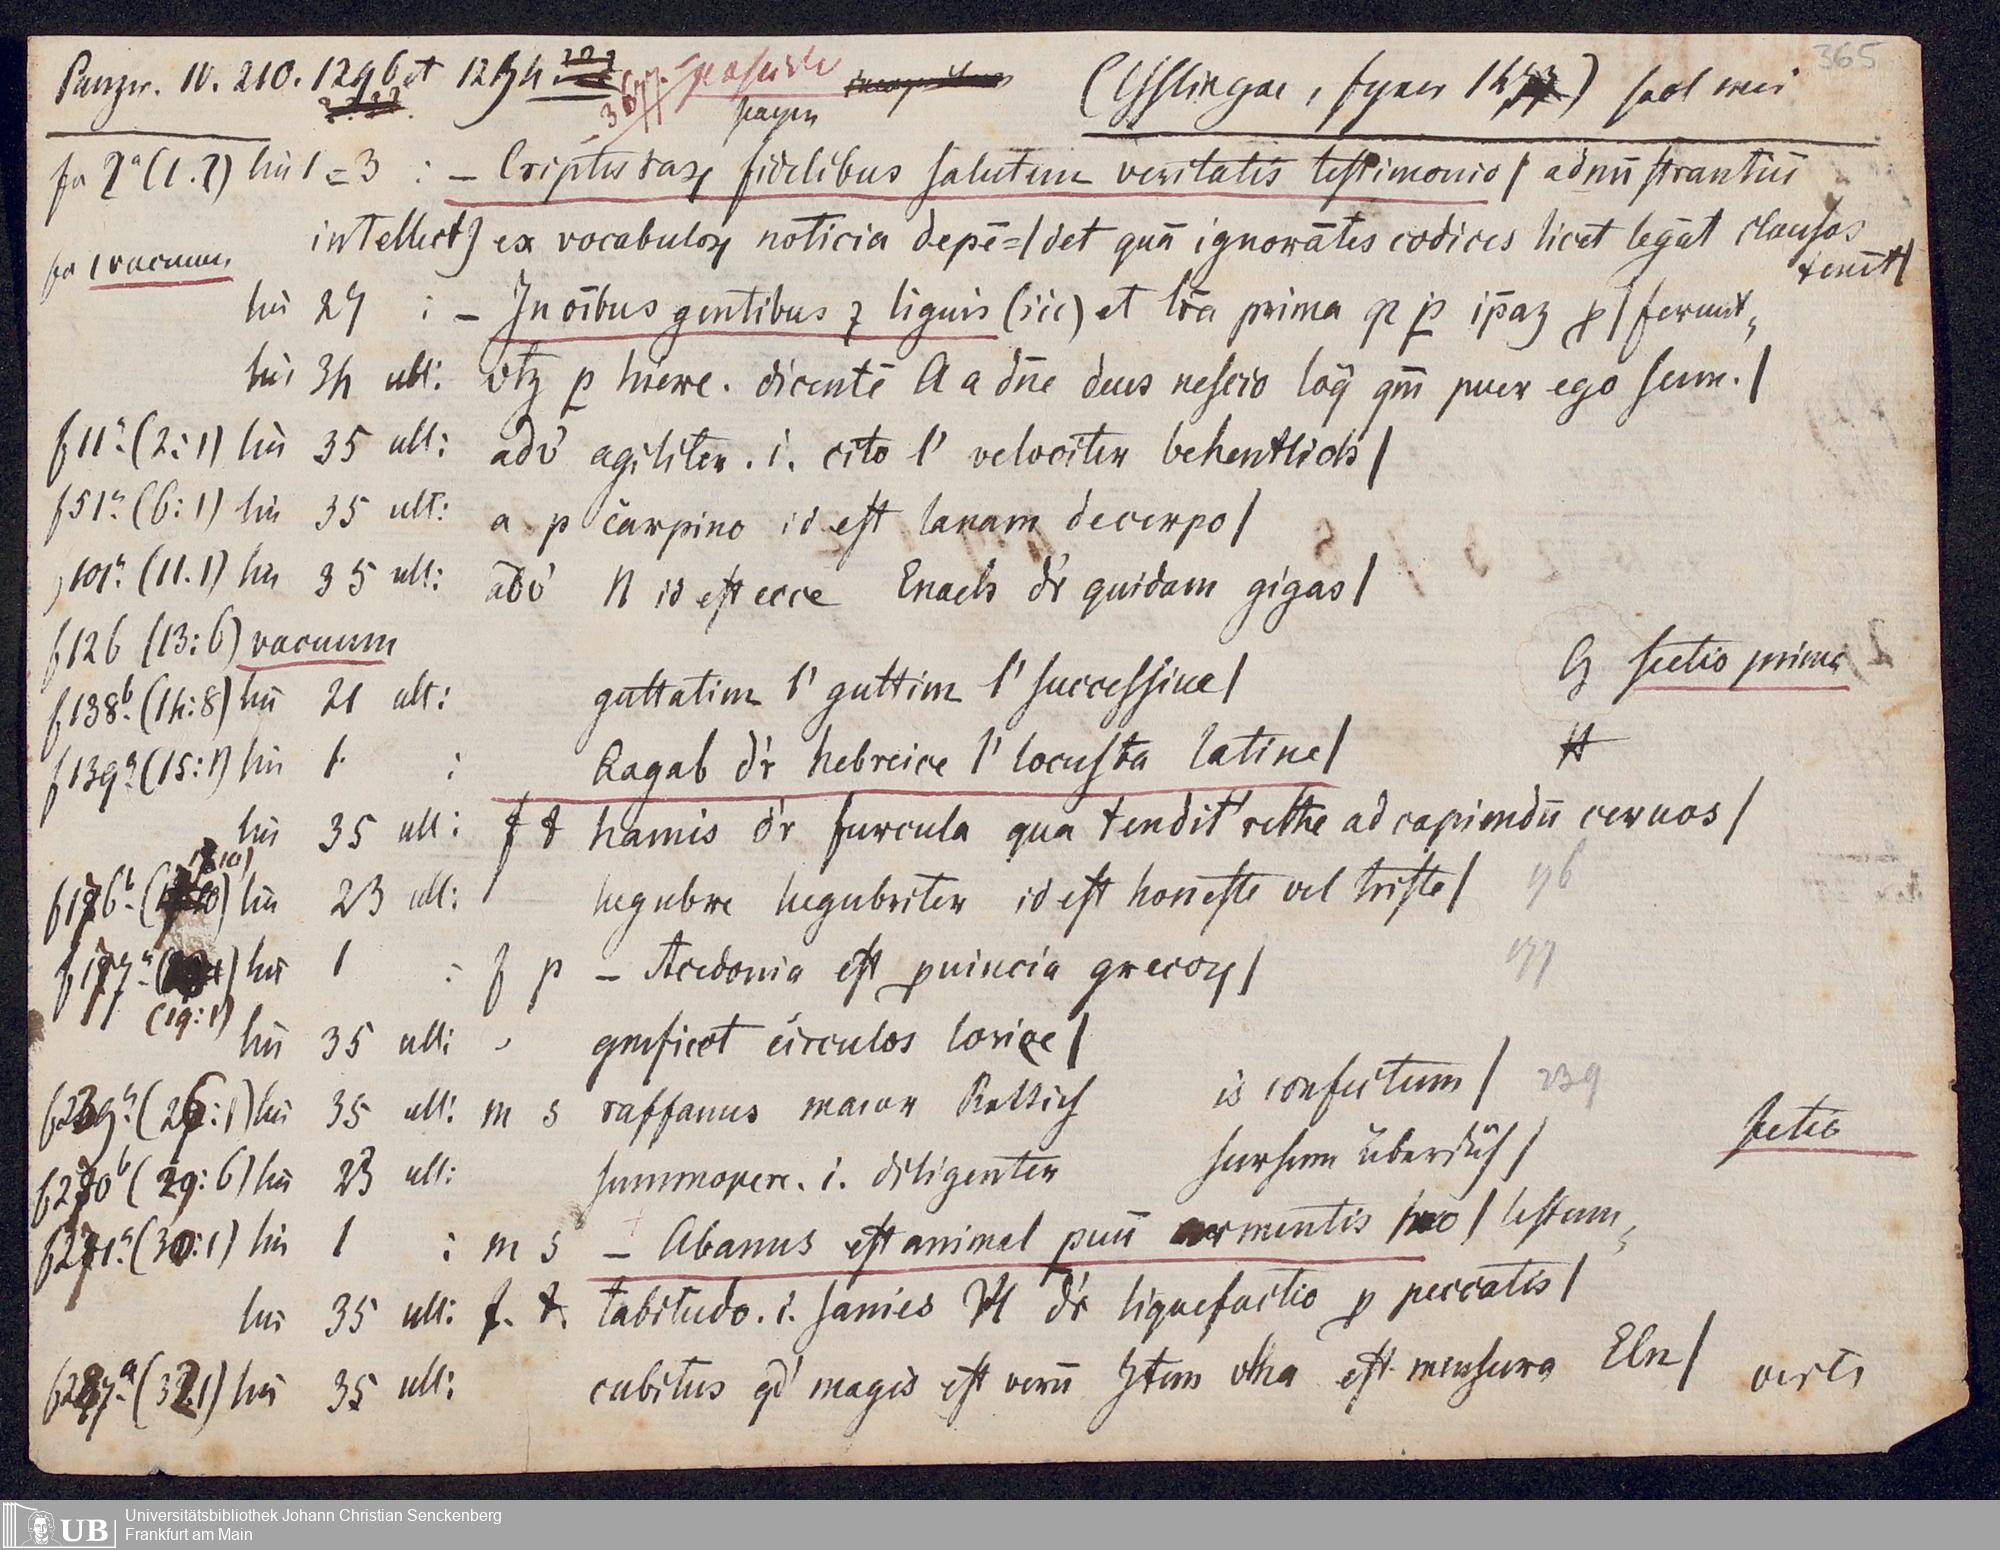 365
Panzer. IV. 210. 1296 et 1254 (Esslingae, fyner 147) sad mei
fo 2ª (1.2) lin 1=3 : – Cripturaꝝ fidelibus salutem veritatis testimonio / admīstrantiū
intellect) ex vocabuloꝝ noticia depē=/det quā ignorātes codices licet legāt clausos
tenēt/
fo 1 vacuum
lin 27 : – In oībus gentibus ⁊ liguis (sic) et lr̄a prima ip̄aꝫ / ferunt
lin 34 ult: vtꝫ p hiere. dicentē A a dn̄e deus nescio loq̄ qm̄ puer ego sum. /
f 11ª (2:1) lin 35 ult: adv' agiliter . i. cito l' velociter behentlich /
f 51ª (6:1) lin 35 ult: a p carpino id est lanam decerpo /
101ª (11.1) lin 35 ult: N id est ecce Enach dr̄ quidam gigas /
f 126 (13:6) vacuum
f 138b. (14:8) lin 21 ult: guttatim l' guttim l' successiue / G sectio prima
f 139ª (15:1) lin 1 : Aagab dr̄ hebreice l' locusta latine / H
lin 35 ult: f t hamis dr̄ furcula qua tendit' rethe ad capiendū ceruos /
f 176b (18:10) lin 23 ult: lugubre lugubriter id est honeste vel triste / 176
f 177ª (19:1) lin 1 : f p – Acedonia est ꝓuincia grecoꝝ / 177
lin 35 ult: gnificet circulos lorice /
f 239ª (26:1) lin 35 ult: m s raffanus maior Rettich is confectum / 239
f 270b (29:6) lin 23 ult: summopere . i. diligenter sursum überdich / sectio
f 271ª (30:1) lin 1 : m s – Abanus est animal armentis / lestum
lin 35 ult: f. t. tabitudo . i. sanies dr̄ liquefactio p peccatis /
f 287ª (32.1) lin 35 ult: cubitus qd' magis est verū Item vlna est mensura Eln / verte
Universitätsbibliothek Johann Christian Senckenberg
UB Frankfurt am Main